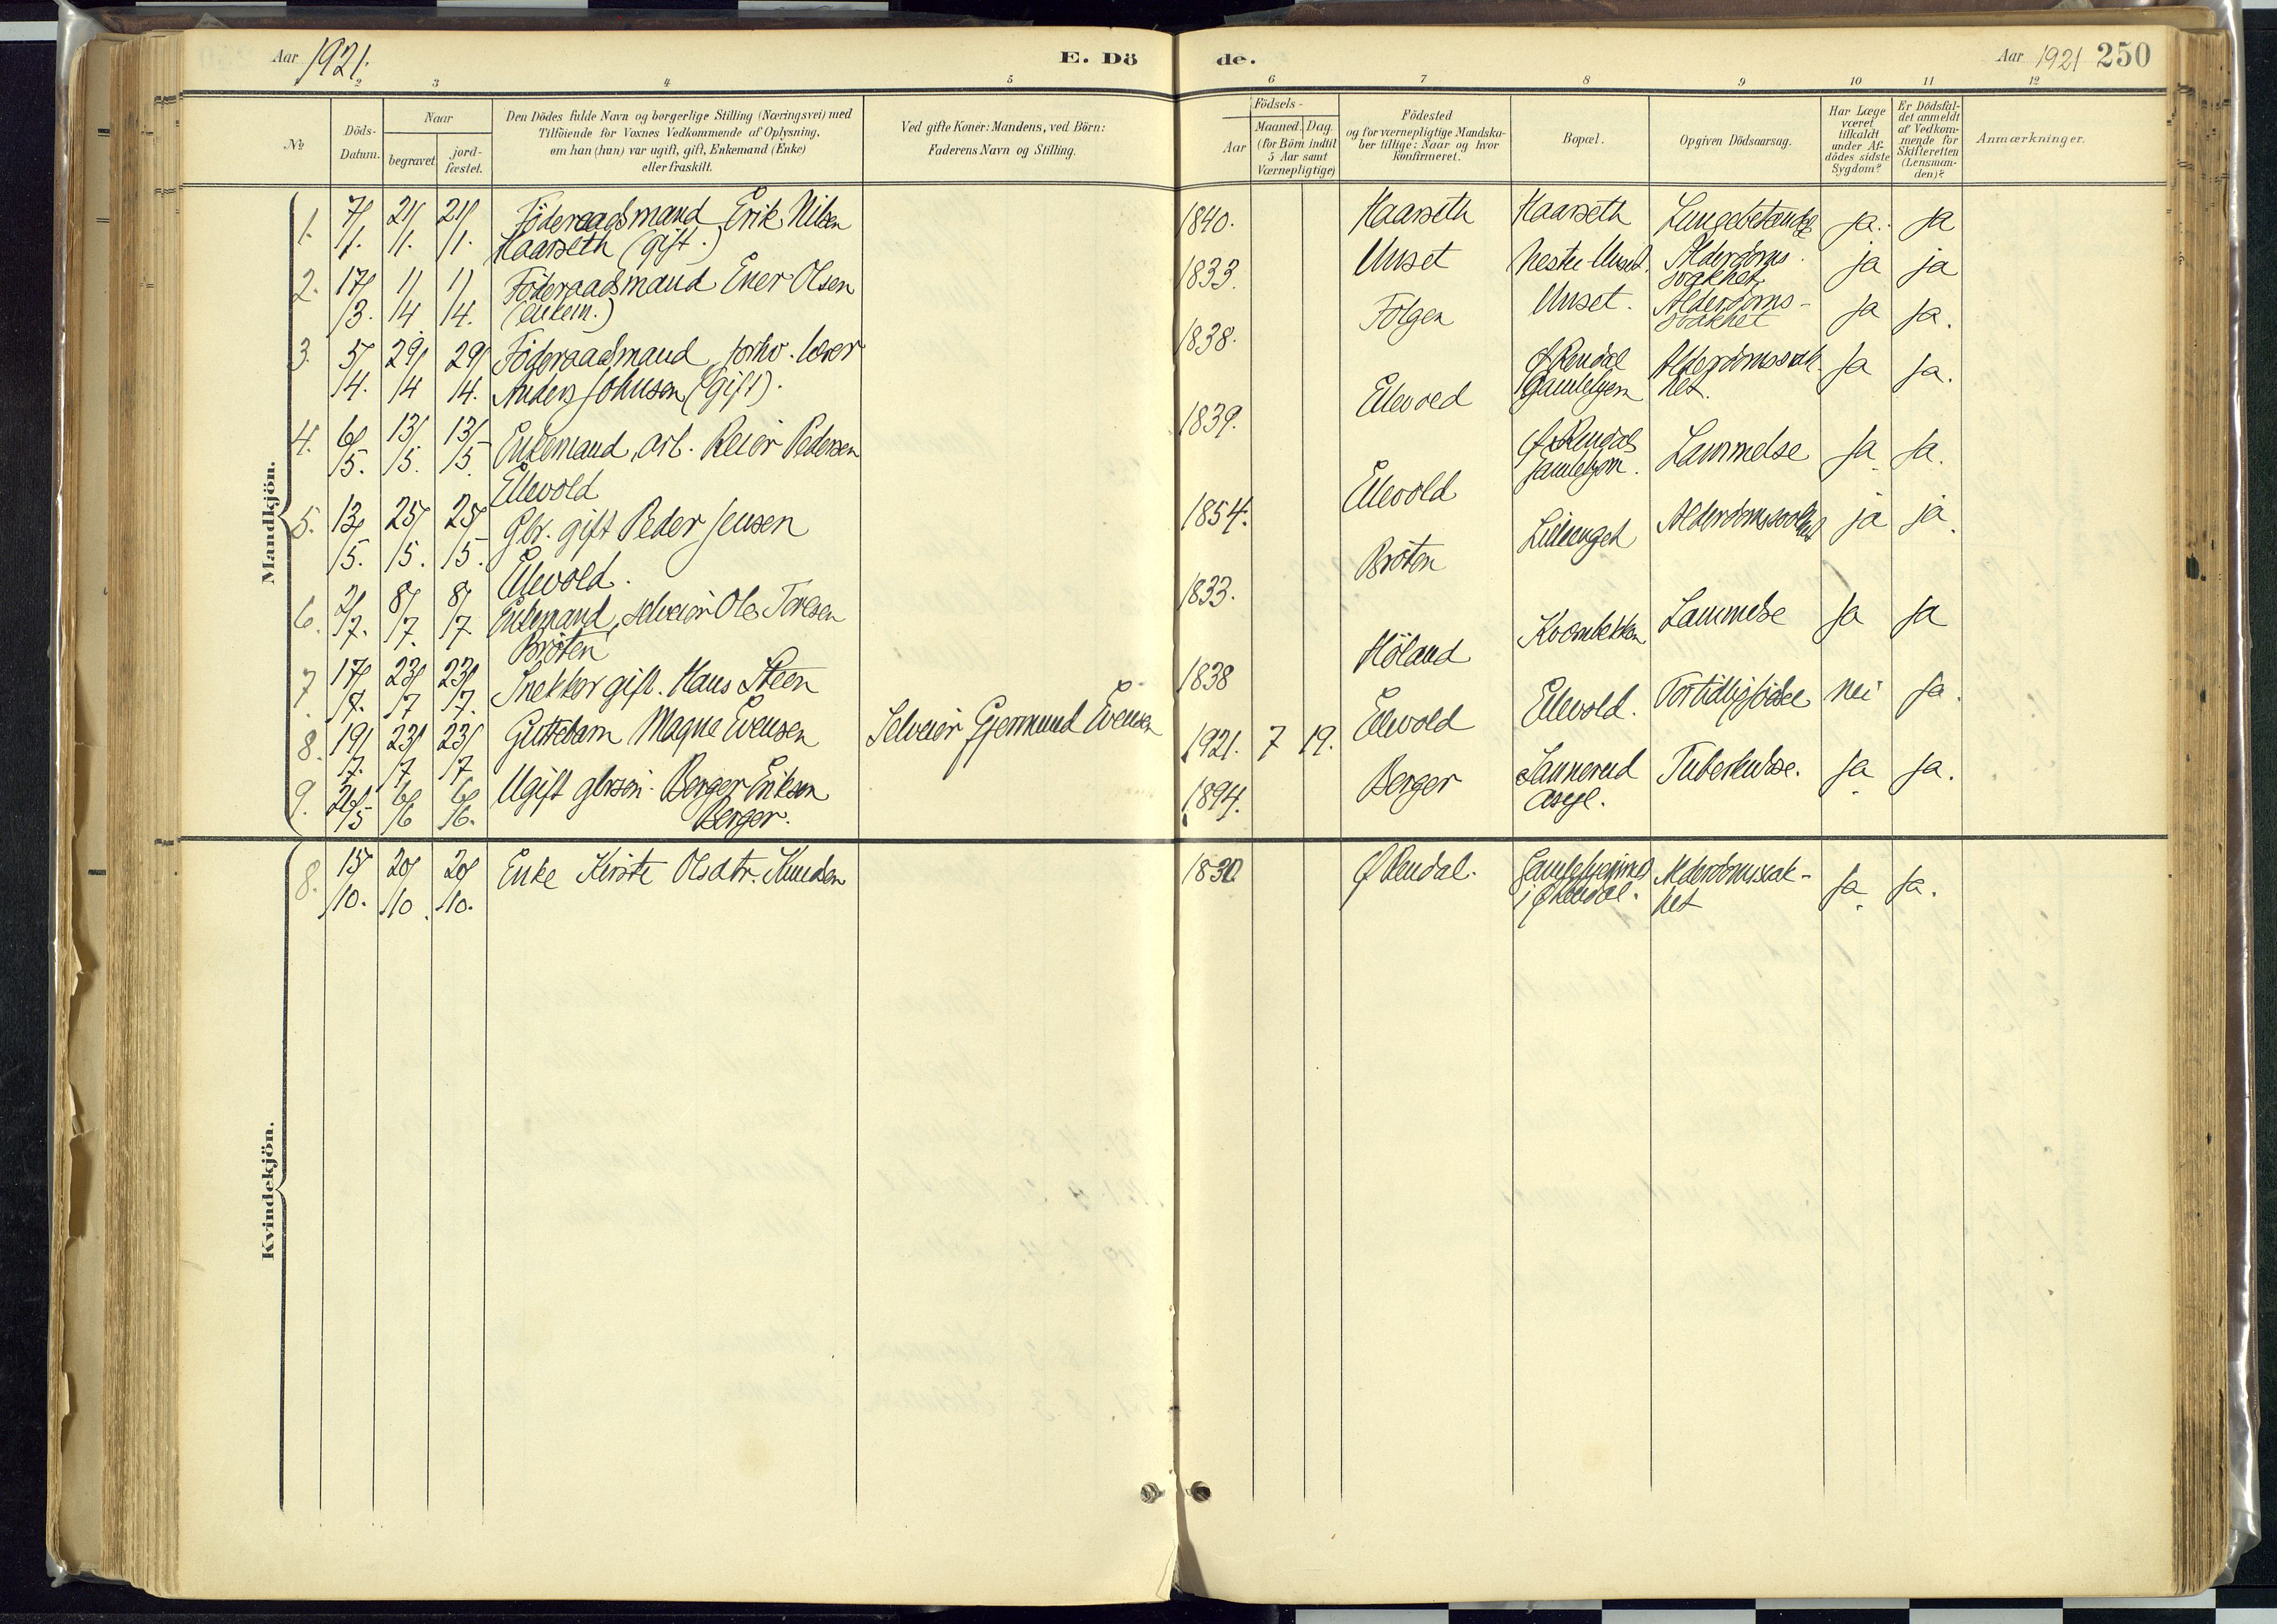 Aar 1921. E. Dö de. Aar 1921 250
1 2 3 4 5 6 7 8 9 10 11 12
№
Döds-
Datum.
Naar
begravet.
jord-
fæstet.
Den Dödes fulde Navn og borgerlige Stilling (Næringsvei) med
Tilföiende for Voxnes Vedkommende af Oplysning,
om han (hun) var ugift, gift, Enkemand (Enke)
eller fraskilt.
Ved gifte Koner: Mandens, ved Börn:
Faderens Navn og Stilling.
Födsels-
Aar
Maaned. Dag.
(for Börn indtil
5 Aar samt
Værnepligtige)
Födested
og for værnepligtige Mandska-
ber tillige: Naar og hvor
konfirmeret.
Bopæl.
Opgiven Dödsaarsag.
Har Læge
været
tilkaldt
under Af-
dödes sidste
Sygdom?
Er Dödsfal-
det anmeldt
af Vedkom-
mende for
Skifteretten
(Lensman-
den)?
Anmærkninger.
Mandkjön.
1. 7/1. 21/1. 21/1. Föderaadsmand Erik Nilsen
Haarseth (gift.)
1840. Haarseth Haarseth Lungebetændelse ja. ja
2. 17/3. 1/4 1/4. Föderaadsmand Ener Olsen
(enkem.)
1833. Unset Nestu-Unset. Alderdoms-
svakhet ja ja
3. 5/4. 29/4 29/4. Föderaadsmand, forhv. lærer
Anders Johnsen (gift).
1838. Folgen Unset. Alderdoms-
svakhet ja ja.
4. 6/5. 13/5. 13/5. Enkemand, arb. Reier Pedersen
Ellevold
1839. Ellevold Ø Rendal
Gamlehjem Alderdomssvak-
het. ja ja.
5. 13/5. 25/5. 25/5. Gbr. gift Peder Jensen
Ellevold.
1854. Ellevold Ø Rendals
gamlehjem. Lammelse ja ja.
6. 2/7. 8/7. 8/7 Enkemand, selveier Ole Toresen
Bröten
1833. Bröten Alderdomssvakhet ja ja.
7. 17/7. 23/7 23/7. Snekker gift. Hans Steen
1838 Höland Lammelse ja ja
8. 19/7. 23/7 23/7 Guttebarn Magne Evensen Selveier Gjermund Evensen
1921. 7 19. Ellevold Ellevold. Fortidligfödsel nei ja.
9. 26/5 6/6 6/6. Ugift gbrsön. Berger Eriksen
Berger.
1894. Berger Sannerud
Asyl. Tuberkulose. ja ja.
Kvindekjön.
8. 15/10. 20/10. 20/10. Enke Kirsti Olsdtr.
1830 Ø Rendal. Gamlehjemmet
i Ø Rendal. Alderdomssvak-
het ja ja.